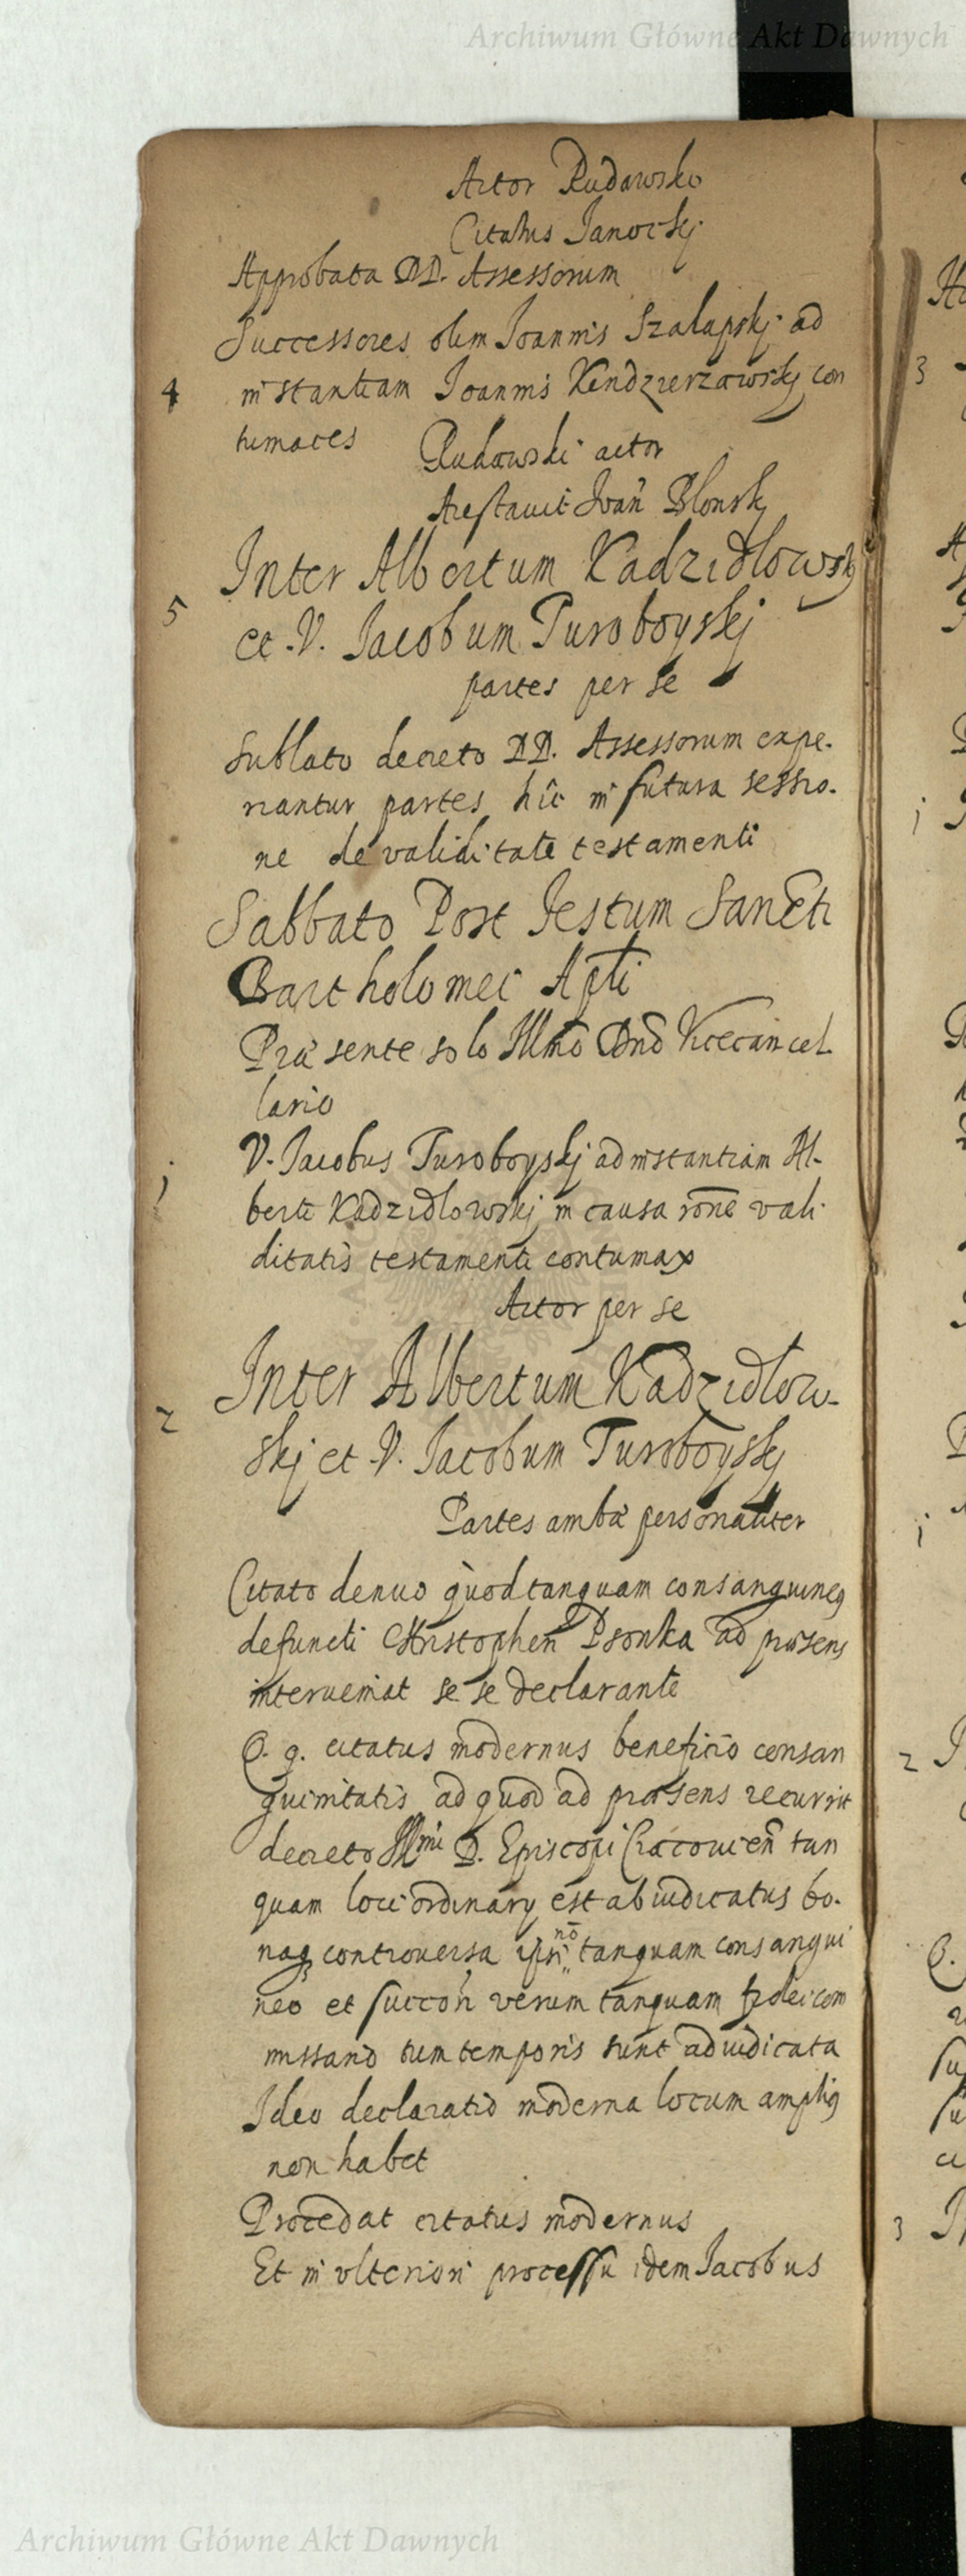 Archiwum Główne Akt Dawnych
Actor Rudawski
Citatus Janocskj
Approbata DD. Assessorum
Successores olim Joannis Szalapskj ad
4 instantiam Joannis Kendzierzawskj con
tumaces
Rudawski actor
Arestavit Ioan̄ Blonskj
Inter Albertum Kadzidlowskj
5
et V. Jacobum Turoboyskj
partes per se
Sublato decreto DD. Assessorum expe-
riantur partes hîc in futura sessio-
ne de validitate testamenti
Sabbato Post Festum Sancti
Bartholomei Apti
Præsente solo Illmo Dno Vicecancel-
lario
V. Jacobus Turoboyskj ad instantiam Al-
j
berti Kadzidlowskj in causa rōne vali-
ditatis testamenti contumax
Actor per se
Inter Albertum Kadzidlow-
2
skj et V. Jacobum Turoboyskj
Partes ambæ personaliter
Citato denuo quod tanquam consanguineq
defuncti Christopheri Psonka ad præsens
interueniat se se declarante
Q. q. citatus modernus beneficio consan
guinitatis ad quod ad præsens recurrit
decreto Illmi D. Episcopi Cracouien̄ tan
quam loci ordinarÿ est abiudicatus bo-
naq controuersa ipsi nō tanquam consangui
neo et succōri verum tanquam fideicom
missario tum temporis sunt adiudicata
Ideo declaratio moderna locum amplig
non habet
Procedat citatus modernus
Et in vlteriori processu idem Jacobus
3
j
j
2
3
Archiwum Główne Akt Dawnych